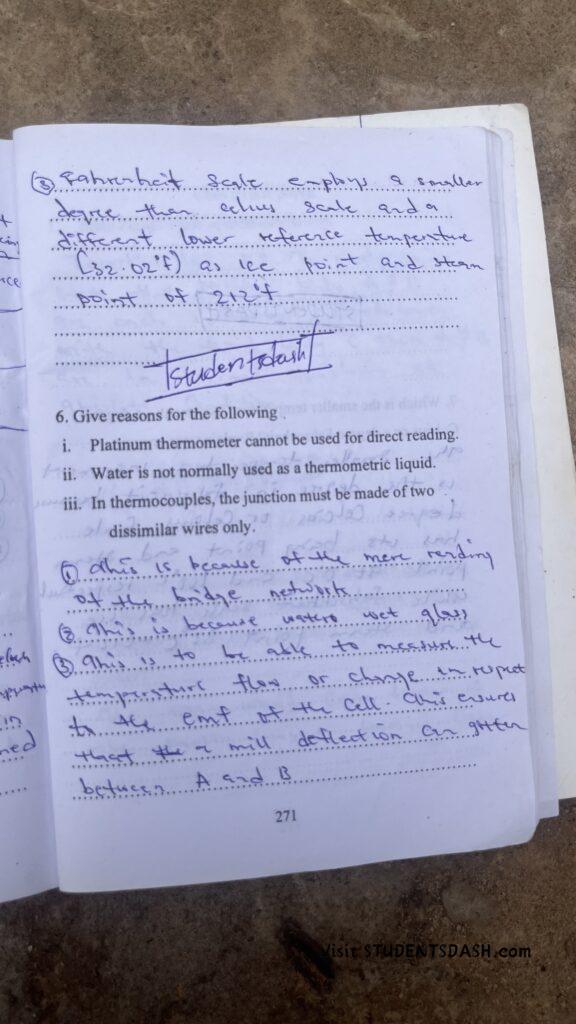 ③ Fahrenheit scale employs a smaller
degree than celcius scale and a
different lower reference temperature
(32.02°f) as ice point and steam
point of 212°f
Studentsdash
6. Give reasons for the following
i. Platinum thermometer cannot be used for direct reading.
ii. Water is not normally used as a thermometric liquid.
iii. In thermocouples, the junction must be made of two
dissimilar wires only.
① This is because of the mere reading
of the bridge network
② This is because waters wet glass
③ This is to be able to measure the
temperature flow or change in respect
to the emf of the cell. This ensures
that a mill deflection can gotten
between A and B
271
Visit STUDENTSDASH.com